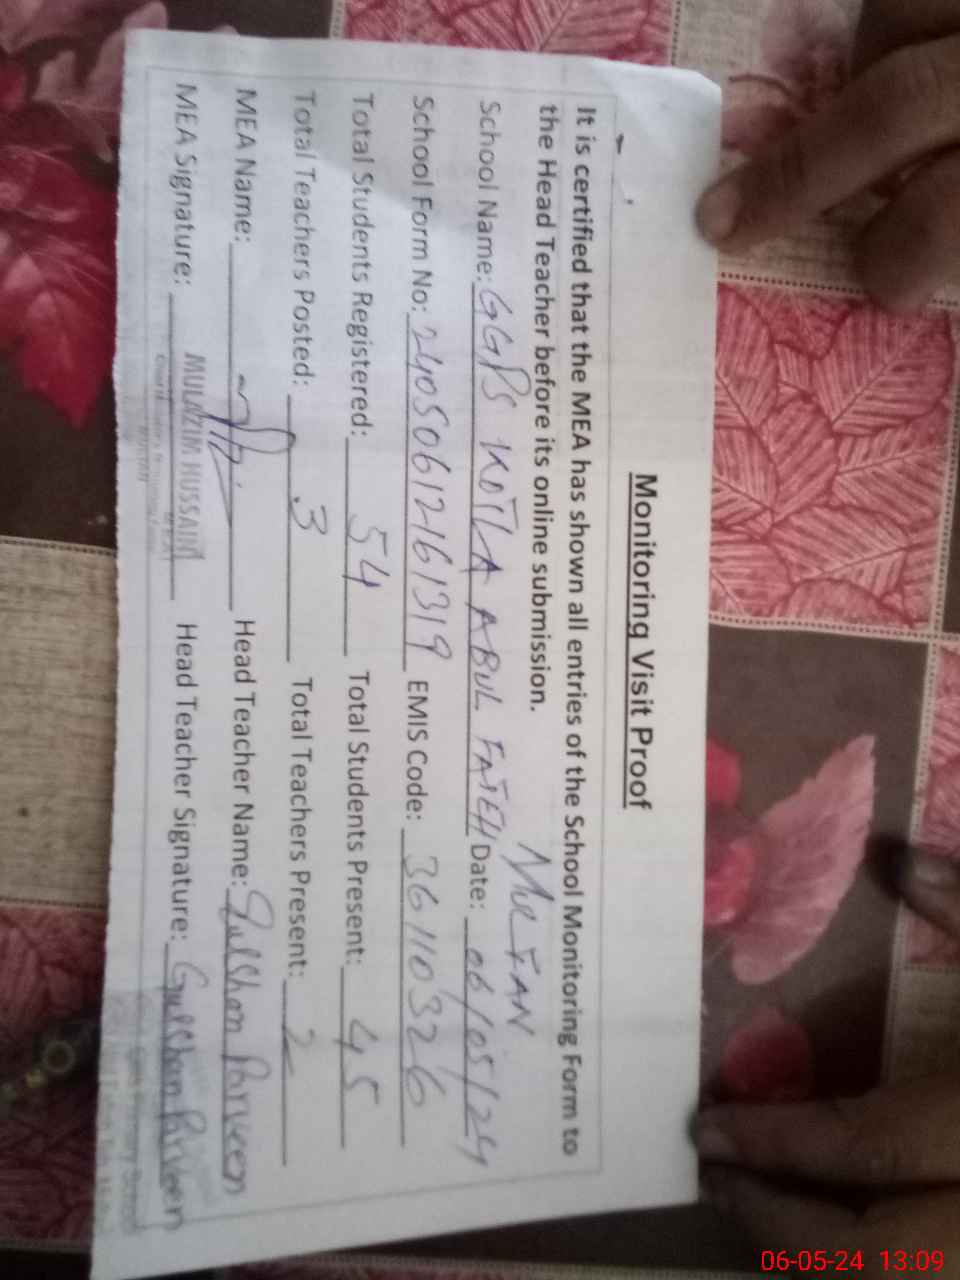 Monitoring Visit Proof
It is certified that the MEA has shown all entries of the School Monitoring Form to
the Head Teacher before its online submission.
MULTAN
School Name: GGPS KOTLA ABUL FATEH Date: 06/05/24
School Form No: 24050612161319 EMIS Code: 36110326
Total Students Registered: 54 Total Students Present: 45
Total Teachers Posted: 3 Total Teachers Present: 2
MEA Name: Head Teacher Name: Gulshan Parveen
MEA Signature: MULAZIM HUSSAIN Head Teacher Signature: Gulshan Parveen
MULTAN
06-05-24 13:09